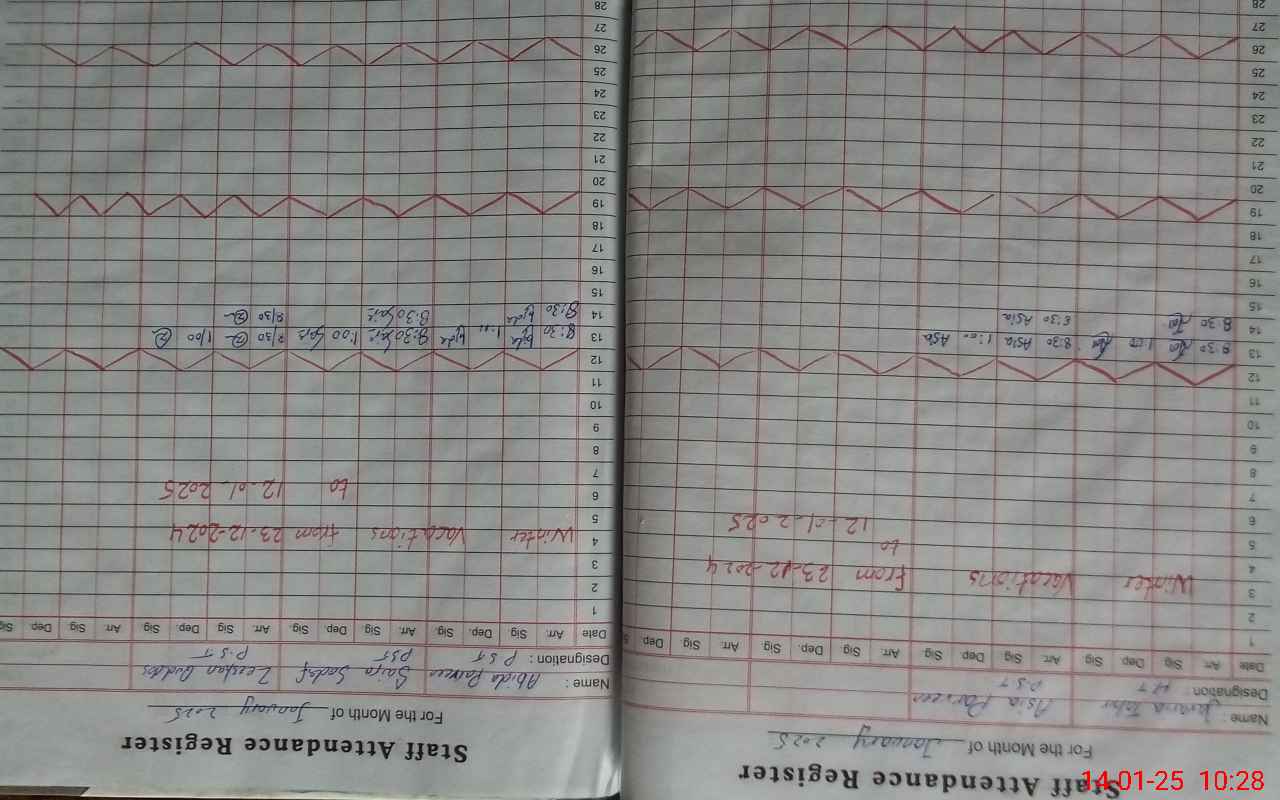 Staff Attendance Register
For the Month of January 2025
Name : Tahir Asia Parveen
Designation : HT P.S.T
Date Arr Sig Dep Sig Arr. Sig Dep Sig Arr. Sig Dep. Sig Arr. Sig Dep.
1
2
3
4 Winter Vacations from 23-12-2024
5 to
6 12-01-2025
7
8
9
10
11
12
13 8:30 1:00 8:30 Asia 1:00 Asia
14 8:30 8:30 Asia
15
16
17
18
19
20
21
22
23
24
25
26
27
28
Staff Attendance Register
For the Month of January 2025
Name : Abida Parveen Saira Sadaf Zeeshan
Designation : P S T PST P.S.T
Date Arr. Sig Dep. Sig Arr. Sig Dep. Sig. Arr. Sig Dep. Sig Arr. Sig Dep. Sig
1
2
3
4 Winter Vacations from 23-12-2024
5
6 to 12-01-2025
7
8
9
10
11
12
13 8:30 8:30 1:00 8/30 1/00
14 8:30 8:30 8/30
15
16
17
18
19
20
21
22
23
24
25
26
27
28
14-01-25 10:28